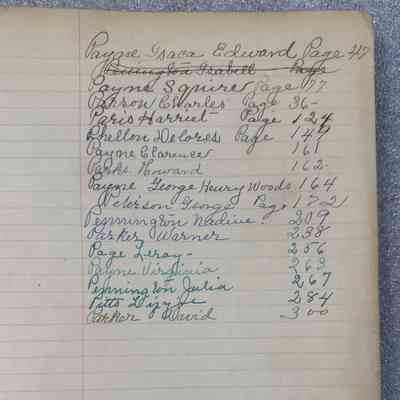 Payne Graca Edward Page 47
Pennington Isabell Page
Payne Squire Page 77
Parson Charles Page 36-
Paris Harriet Page 124
Phelton Delores Page 149
Payne Clarence 161
Parks Howard 162-
Payne George Henry Woods 164
Peterson George Page 172
Pennington Nadine. 209
Parker Warner 238
Page Leroy - 256
Payne Virginia 263
Pennington Julia 267
Pitts Lizzie 284
Parker David 300